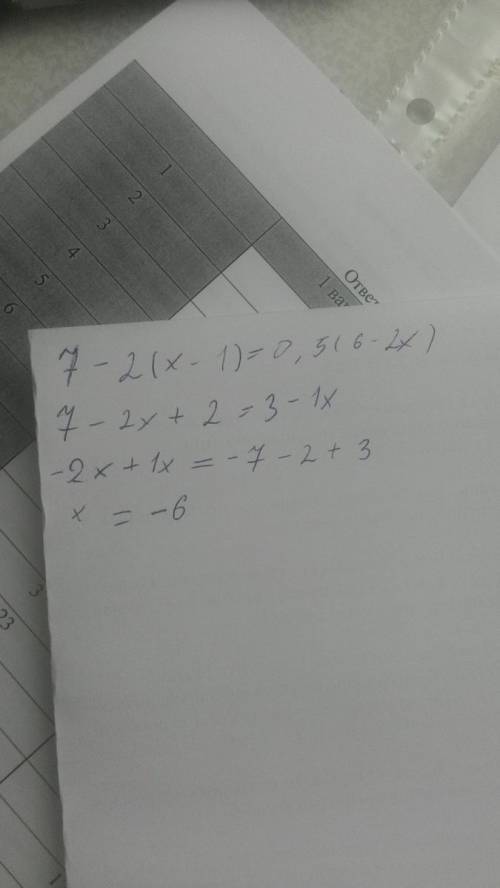 1
2
3
4
5
6
1
3
23
7 - 2(x - 1) = 0,5(6 - 2x)
7 - 2x + 2 = 3 - 1x
-2x + 1x = -7 - 2 + 3
x = -6